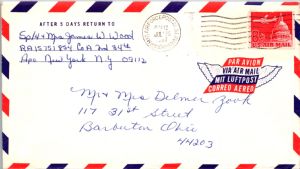 AFTER 5 DAYS RETURN TO
Sp/4 & Mrs James W. Wood
RA15751874 Co A 2nd 34th
Apo New York N.Y 09112
8c
U.S. AIR MAIL
PAR AVION
VIA AIR MAIL
MIT LUFTPOST
CORREO AEREO
Mr & Mrs Delmer Zook
117 31st Street
Barberton Ohio
44203